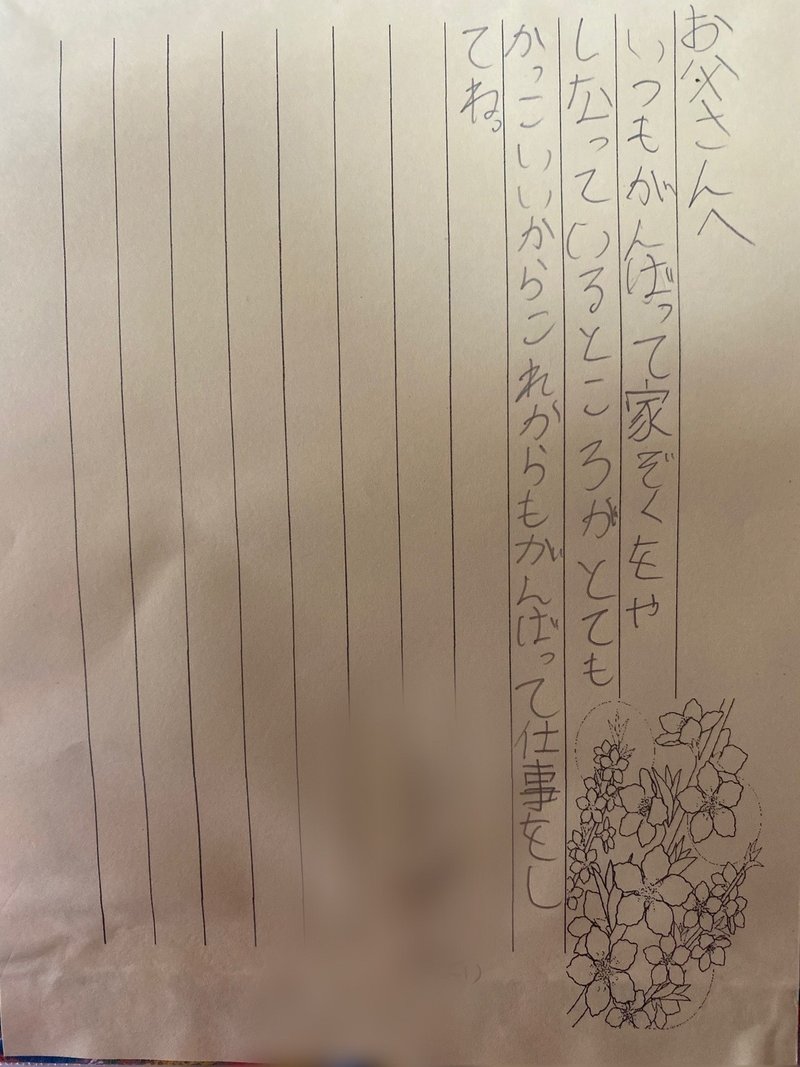 お父さんへ
いつもがんばって家ぞくをや
しなっているところがとても
かっこいいからこれからもがんばって仕事をし
てね。